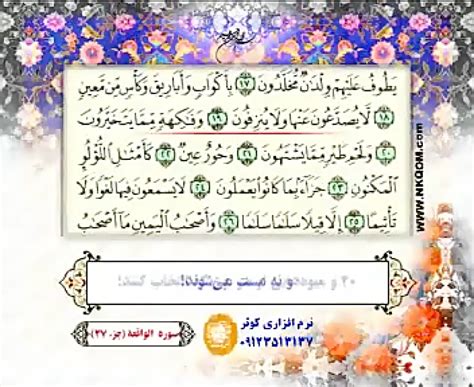 يَطُوفُ عَلَيْهِمْ وِلْدَٰنٌ مُّخَلَّدُونَ ١٧ بِأَكْوَابٍ وَأَبَارِيقَ وَكَأْسٍ مِّن مَّعِينٍ
١٨ لَّا يُصَدَّعُونَ عَنْهَا وَلَا يُنزِفُونَ ١٩ وَفَٰكِهَةٍ مِّمَّا يَتَخَيَّرُونَ
٢٠ وَلَحْمِ طَيْرٍ مِّمَّا يَشْتَهُونَ ٢١ وَحُورٌ عِينٌ ٢٢ كَأَمْثَٰلِ ٱللُّؤْلُؤِ
ٱلْمَكْنُونِ ٢٣ جَزَآءً بِمَا كَانُوا۟ يَعْمَلُونَ ٢٤ لَا يَسْمَعُونَ فِيهَا لَغْوًا وَلَا
تَأْثِيمًا ٢٥ إِلَّا قِيلًا سَلَٰمًا سَلَٰمًا ٢٦ وَأَصْحَٰبُ ٱلْيَمِينِ مَآ أَصْحَٰبُ
WWW.NKQOM.com
و نه مست می‌شوند!
سوره الواقعة (جزء ۲۷)
نرم افزاری کوثر
۰۹۱۲۳۵۱۳۱۳۷